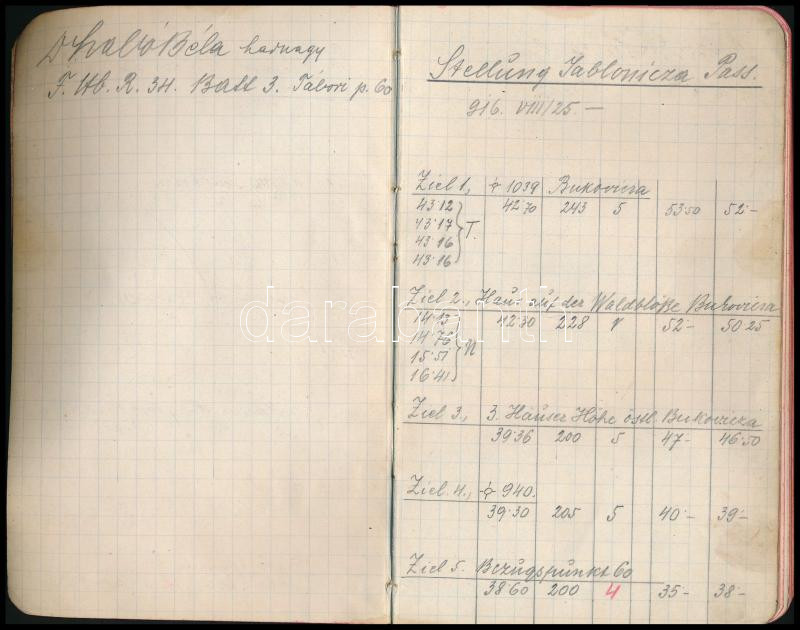 Béla hadnagy
F. Hb. R. 34. Batt 3. Tábori p. 60
Stellung Jablonicza Pass.
916. VIII/25 —
Ziel 1, 1039 Bukovicza
43·12 42·70 243 5 53·50 52·–
43·17
43·16 T.
43·16
Ziel 2., Haus auf der Waldblöße Bukovicza
14·13 42·30 228 52·– 50·25
14·76
15·51 N
16·41
Ziel 3., 3. Häuser Höhe östl. Bukovicza
39·36 200 5 47·– 46·50
Ziel 4., 940.
39·30 205 5 40·– 39·–
Ziel 5. Bezugspunkt 60
38·60 200 4 35·– 38·–
darabanth